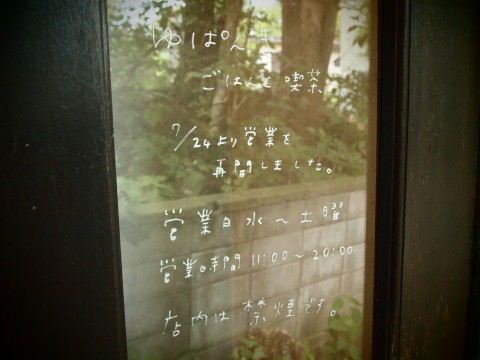 ゆぱんき
ごはんと喫茶
7/24より営業を
再開しました。
営業日水～土曜
営業時間11:00～20:00
店内は禁煙です。